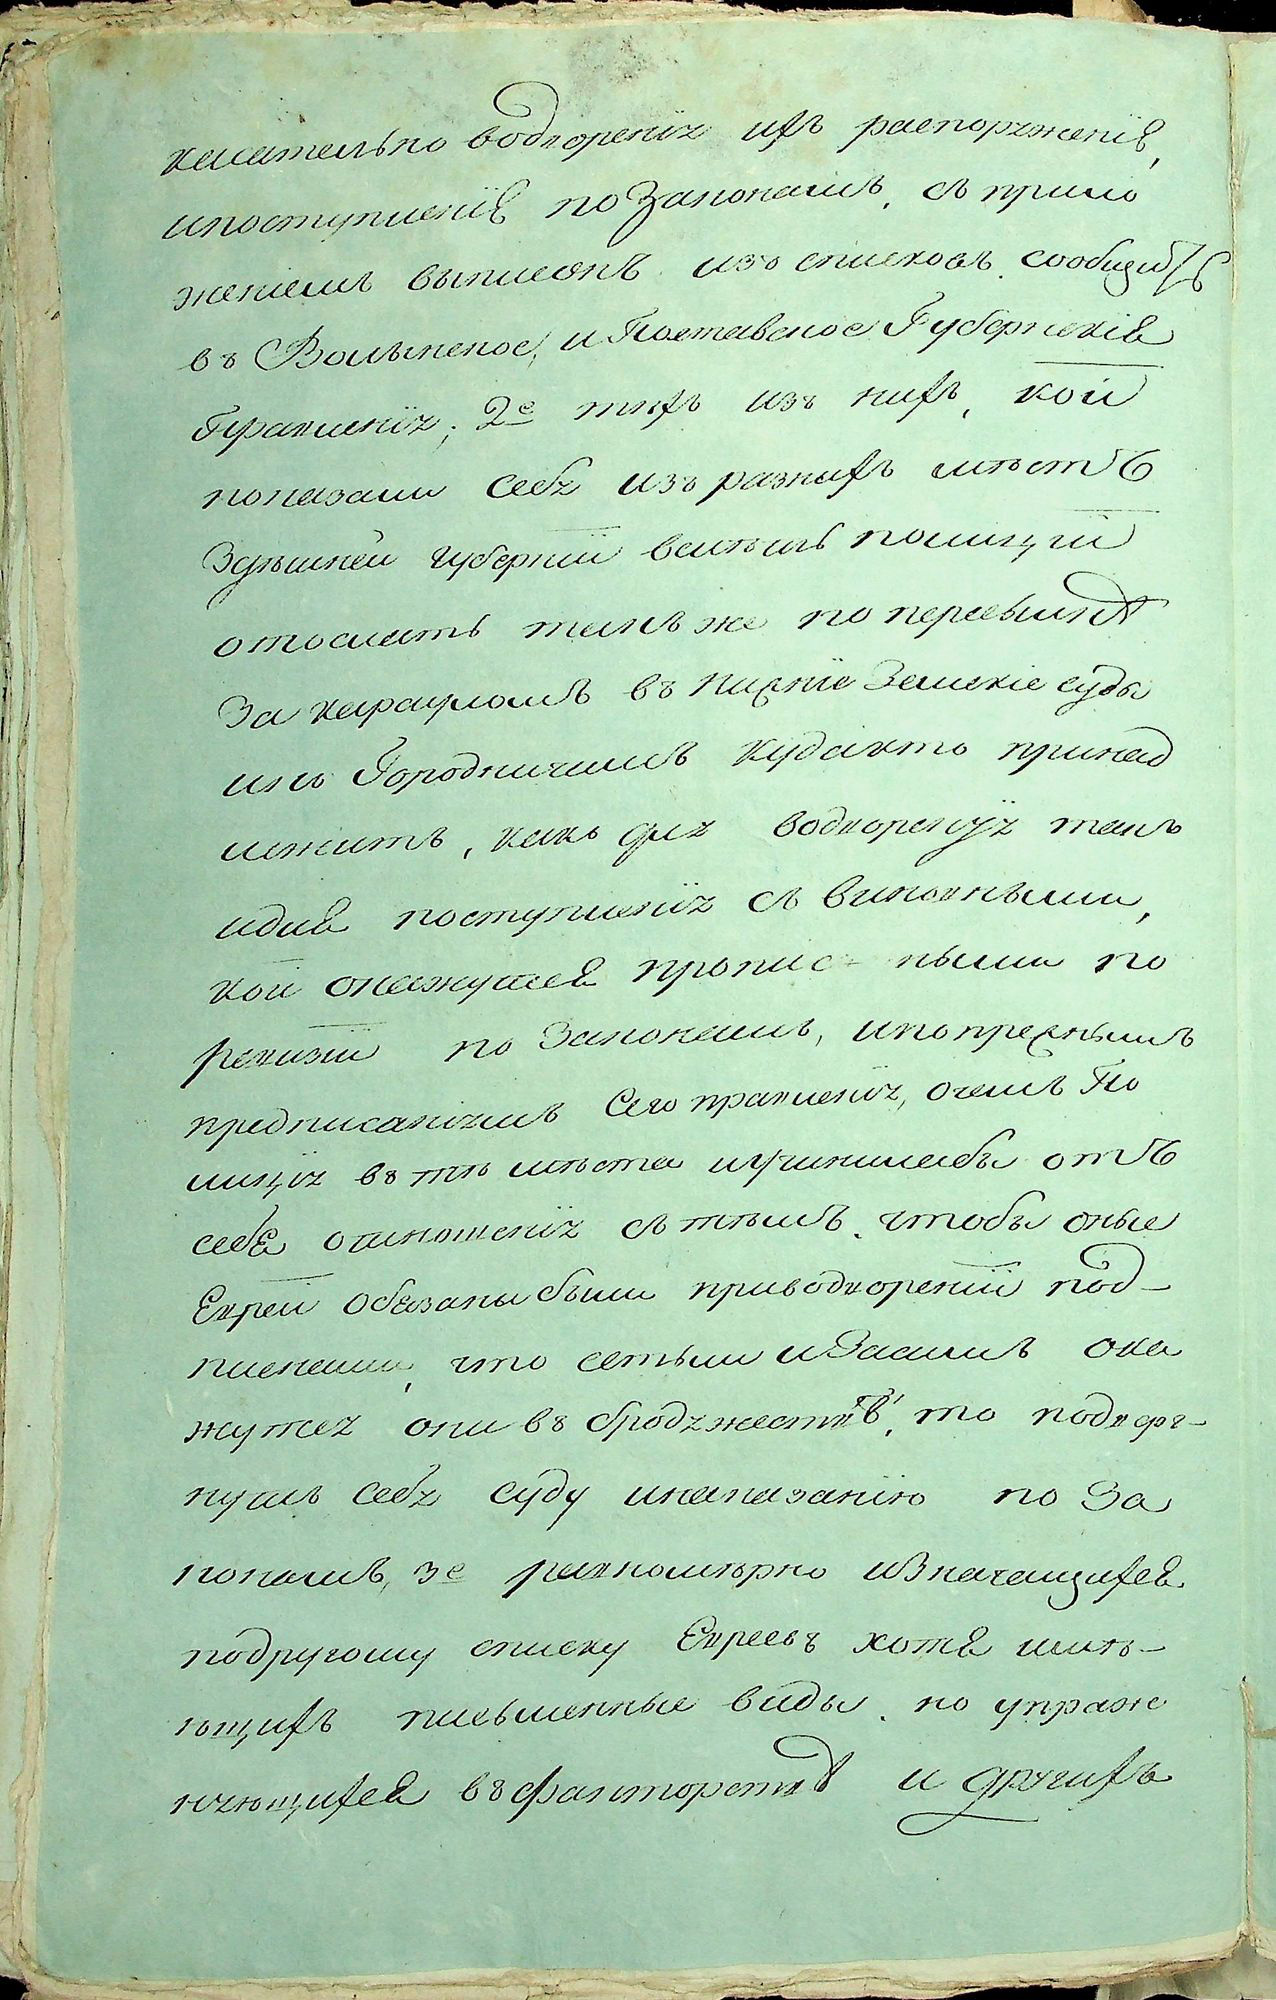 касательно водворенiя ихъ распоряженiя,
ипоступленiя по Законамъ, съ прило
женiемъ выписокъ изъ списковъ сообщить
въ Волынское, и Полтавское Губернскiя
Правленiя, 2е тѣхъ изъ нихъ, кои
показали себя изъ разныхъ мѣстъ
Здѣшней губернiи велѣть полицiи
отослать также по пересылкѣ
За карауломъ въ Нижнiе Земскiе суды
иль Городничимъ куда кто принад
лежитъ, какъ для водворенiя такъ
идля поступленiя съ виновными,
кои окажутся пропис- ными по
ревизiи по Законамъ, ипопрежнымъ
предписанiямъ Сего правленiя, очемъ По
лицiя въ тѣ мѣста иучинилабы отъ
себя отношенiя стѣмъ, чтобы оные
Евреи обязаны были приводворенiи под-
писками, что естьли иЗасимъ ока
жутся они въ бродяжествѣ, то подверг-
нутъ себя суду инаказанiю по За
конамъ, 3е равномѣрно иЗначащихся
подругому списку Евреевъ хотя имѣ-
ющихъ письменные виды, но упраж
няющихся въ факторствѣ и другихъ